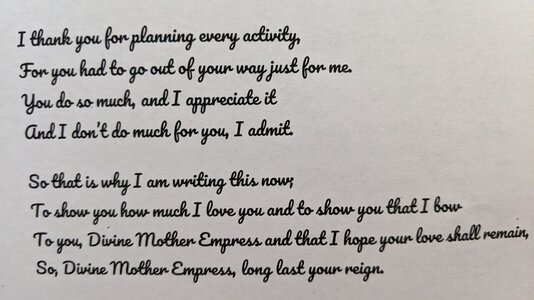 I thank you for planning every activity,
For you had to go out of your way just for me.
You do so much, and I appreciate it
And I don't do much for you, I admit.
So that is why I am writing this now;
To show you how much I love you and to show you that I bow
To you, Divine Mother Empress and that I hope your love shall remain,
So, Divine Mother Empress, long last your reign.